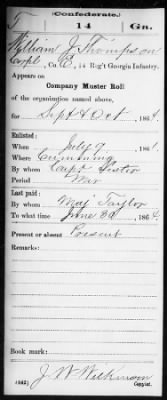 (Confederate.)
T 14 Ga.
William J. Thompson
Corpl, Co. E, 14 Reg't Georgia Infantry.
Appears on
Company Muster Roll
of the organization named above,
for Sept & Oct, 1864.
Enlisted:
When July 9, 1861.
Where Cumming
By whom Capt
Period War
Last paid:
By whom Maj Taylor
To what time June 30, 1864.
Present or absent Present
Remarks:
Book mark:
J. W. Wilkinson
(642) Copyist.